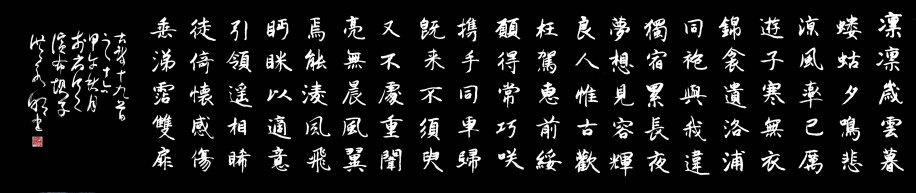 凛凛歲雲暮
螻蛄夕鳴悲
涼風率已厲
遊子寒無衣
錦衾遺洛浦
同袍與我違
獨宿累長夜
夢想見容輝
良人惟古歡
枉駕惠前綏
願得常巧咲
携手同車歸
既来不須臾
又不處重闈
亮無晨風翼
焉能凌风飛
眄睞以適意
引領遥相睎
徒倚懷感傷
垂涕霑雙扉
古詩十九首
之十六
甲午秋月